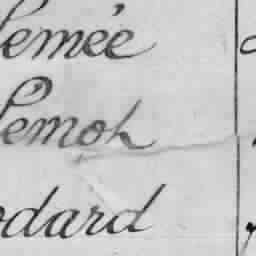 lemée
Lemoh
odard